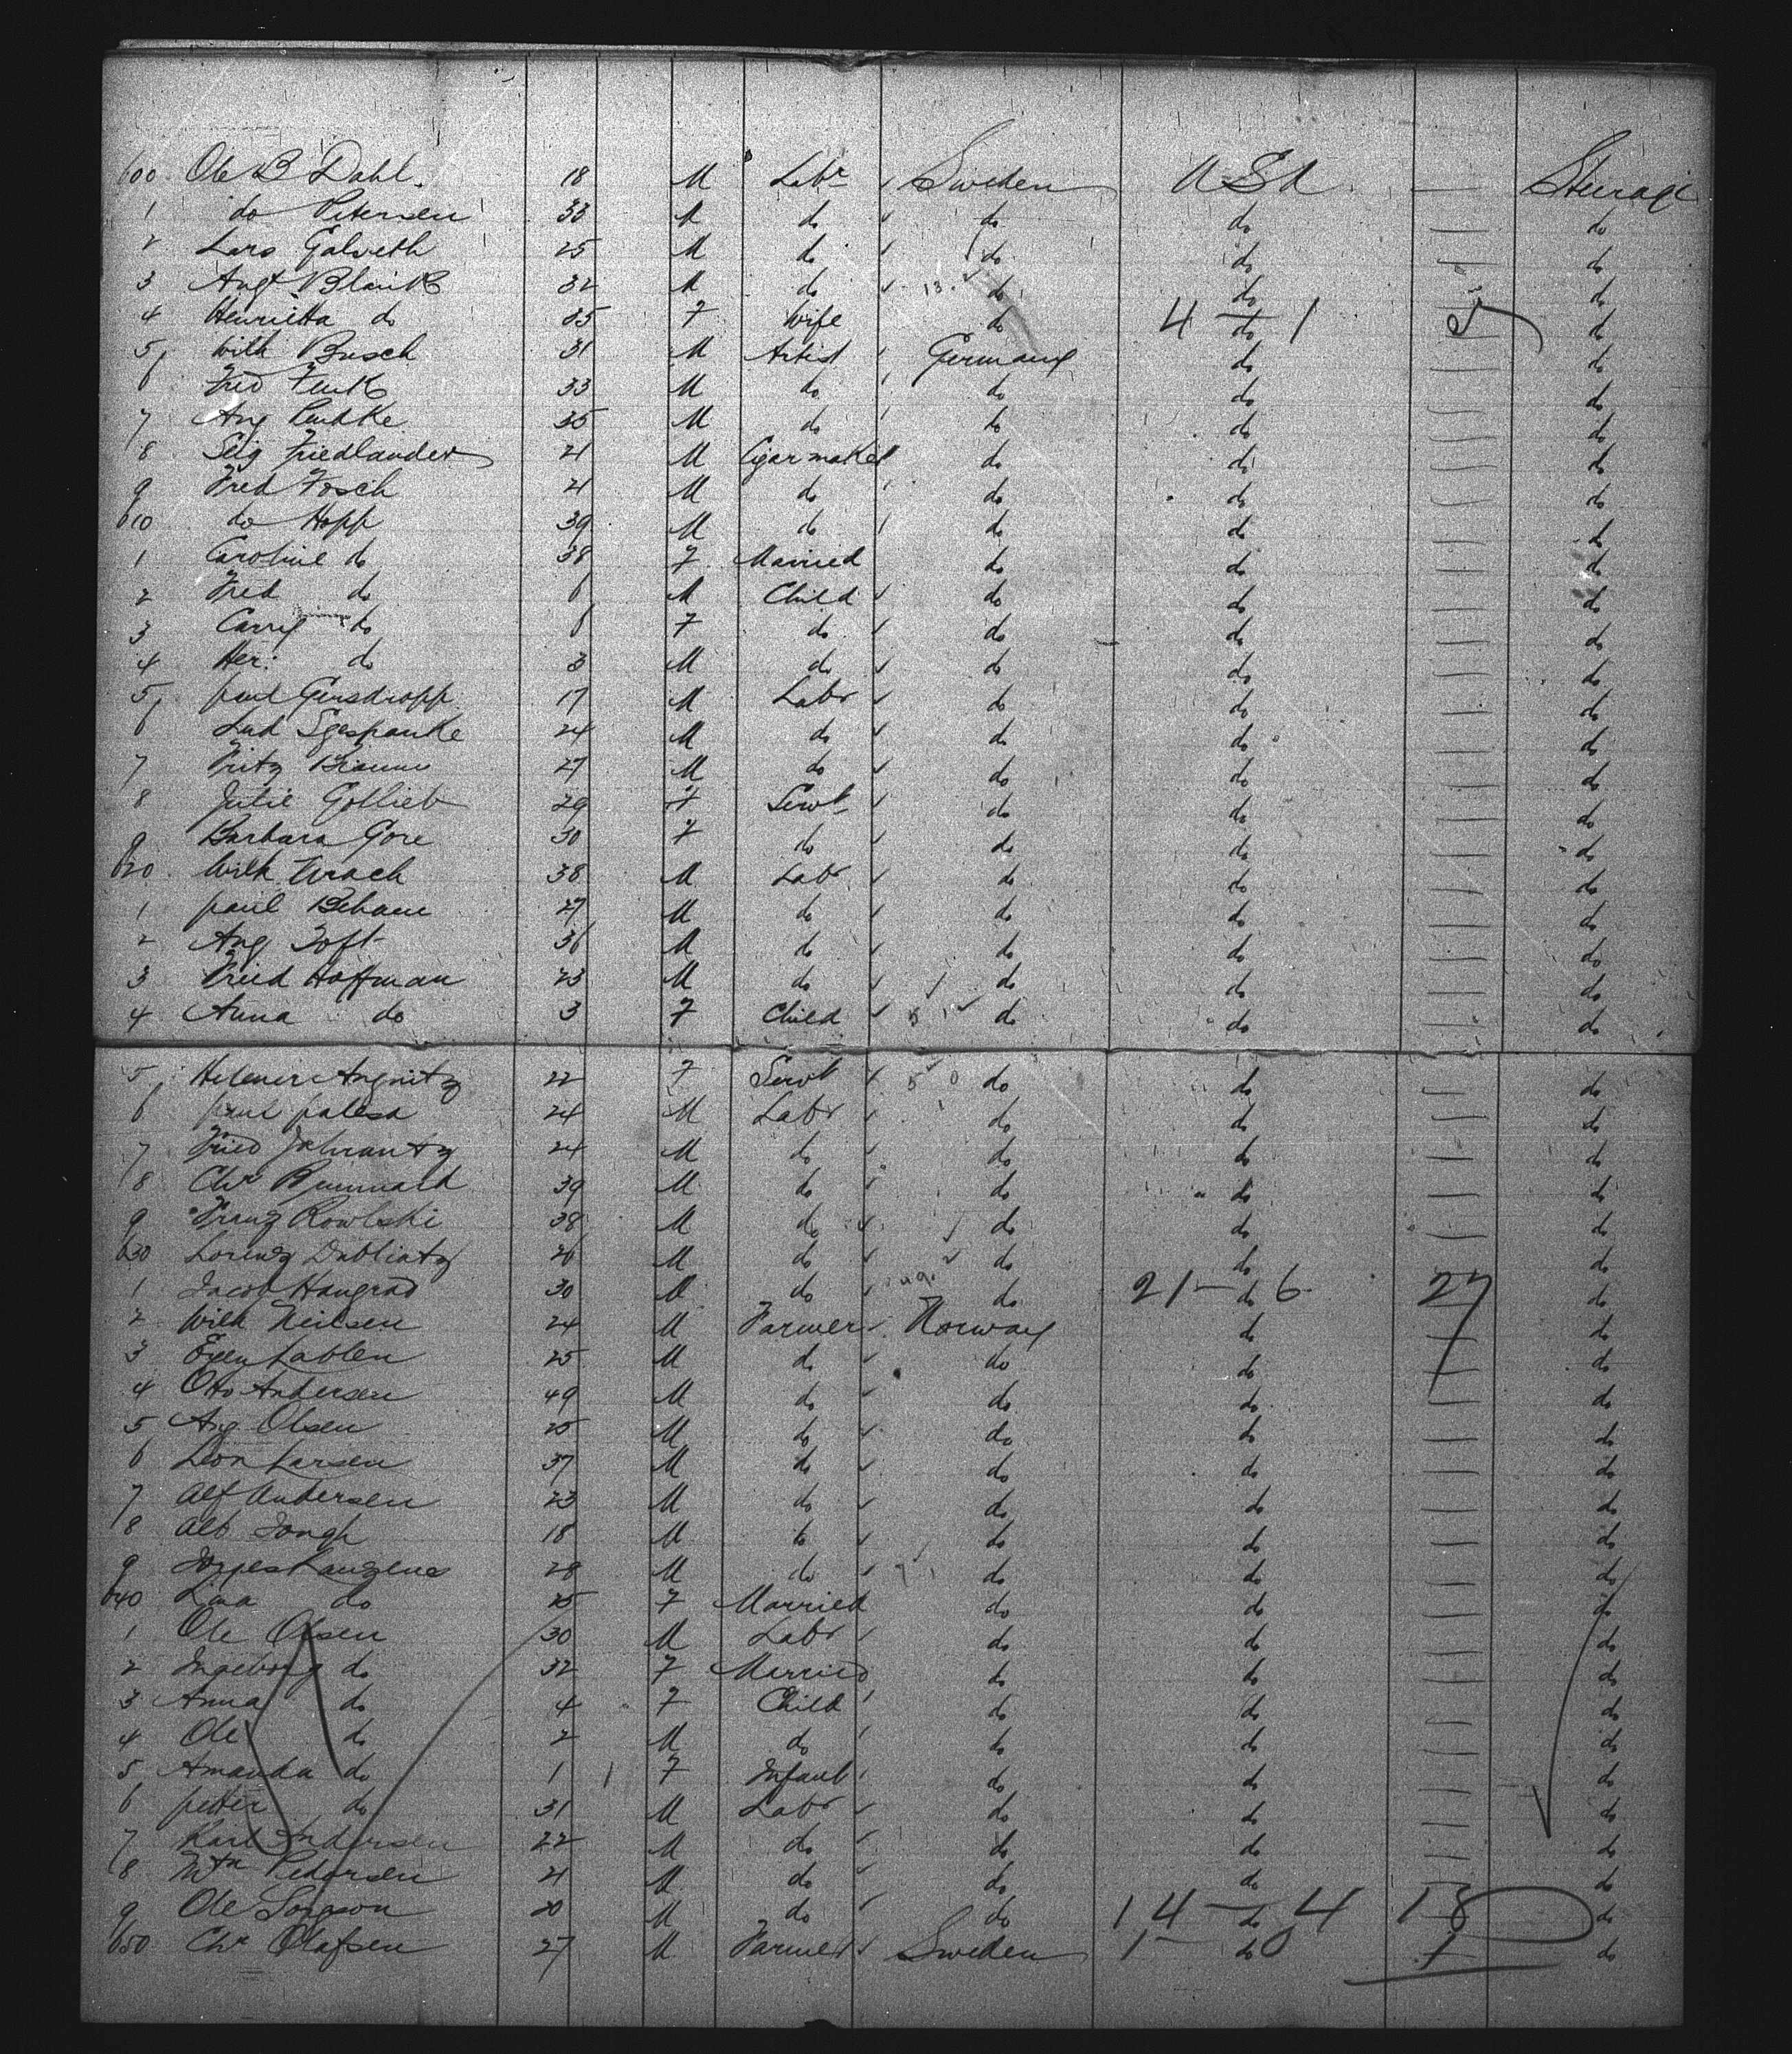 600 Ole B Dahl 18 M Labr Sweden USA — Steerage
1 do Petersen 33 M do do do — do
2 Lars Galveth 25 M do do do — do
3 Augt Blank 32 M do 13. do do — do
4 Henrietta do 35 F Wife do 4 — do 1 5 do
5 Wilh Busch 31 M Artist Germany do — do
6 Fred Funk 33 M do do do — do
7 Aug 35 M do do do — do
8 Seig Friedlander 21 M Cigarmaker do do — do
9 Fred Fosch 21 M do do do — do
610 do Hopp 39 M do do do — do
1 Caroline do 38 F Married do do — do
2 Fred do 6 M Child do do — do
3 Carry do 6 F do do do — do
4 Her: do 3 M do do do — do
5 paul Gensdropp 17 M Labr do do — do
6 Lud 24 M do do do — do
7 Fritz 27 M do do do — do
8 Julie Gottlieb 29 F Servt do do — do
9 Barbara Gore 30 F do do do — do
620 Wilh 38 M Labr do do — do
1 paul 27 M do do do — do
2 Aug 36 M do do do — do
3 Fried Hoffman 23 M do do do — do
4 Anna do 3 F Child do do — do
5 22 F Servt do do — do
6 paul 24 M Labr do do — do
7 Fried 24 M do do do — do
8 Chr 39 M do do do — do
9 Franz Rowlski 38 M do do do — do
630 Lorenz 26 M do do do — do
1 Jacob Haugrad 30 M do do 21 — do 6 27 do
2 Wilh Neilsen 24 M Farmer Norway do — do
3 25 M do do do — do
4 Otto Andersen 49 M do do do — do
5 Aug Olsen 25 M do do do — do
6 Leon Larsen 37 M do do do — do
7 Alf Andersen 23 M do do do — do
8 Alb 18 M do do do — do
9 28 M do do do — do
640 Lina do 25 F Married do do — do
1 Ole Olsen 30 M Labr do do — do
2 Ingeborg do 32 F Married do do — do
3 Anna do 4 F Child do do — do
4 Ole do 2 M do do do — do
5 Amanda do 1 1 F Infant do do — do
6 petter do 31 M Labr do do — do
7 Karl Andersen 22 M do do do — do
8 Mtn Pedersen 21 M do do do — do
9 Ole 20 M do do 14 — do 4 18 do
650 Chr Olafsen 27 M Farmer Sweden 1 — do 0 1 do